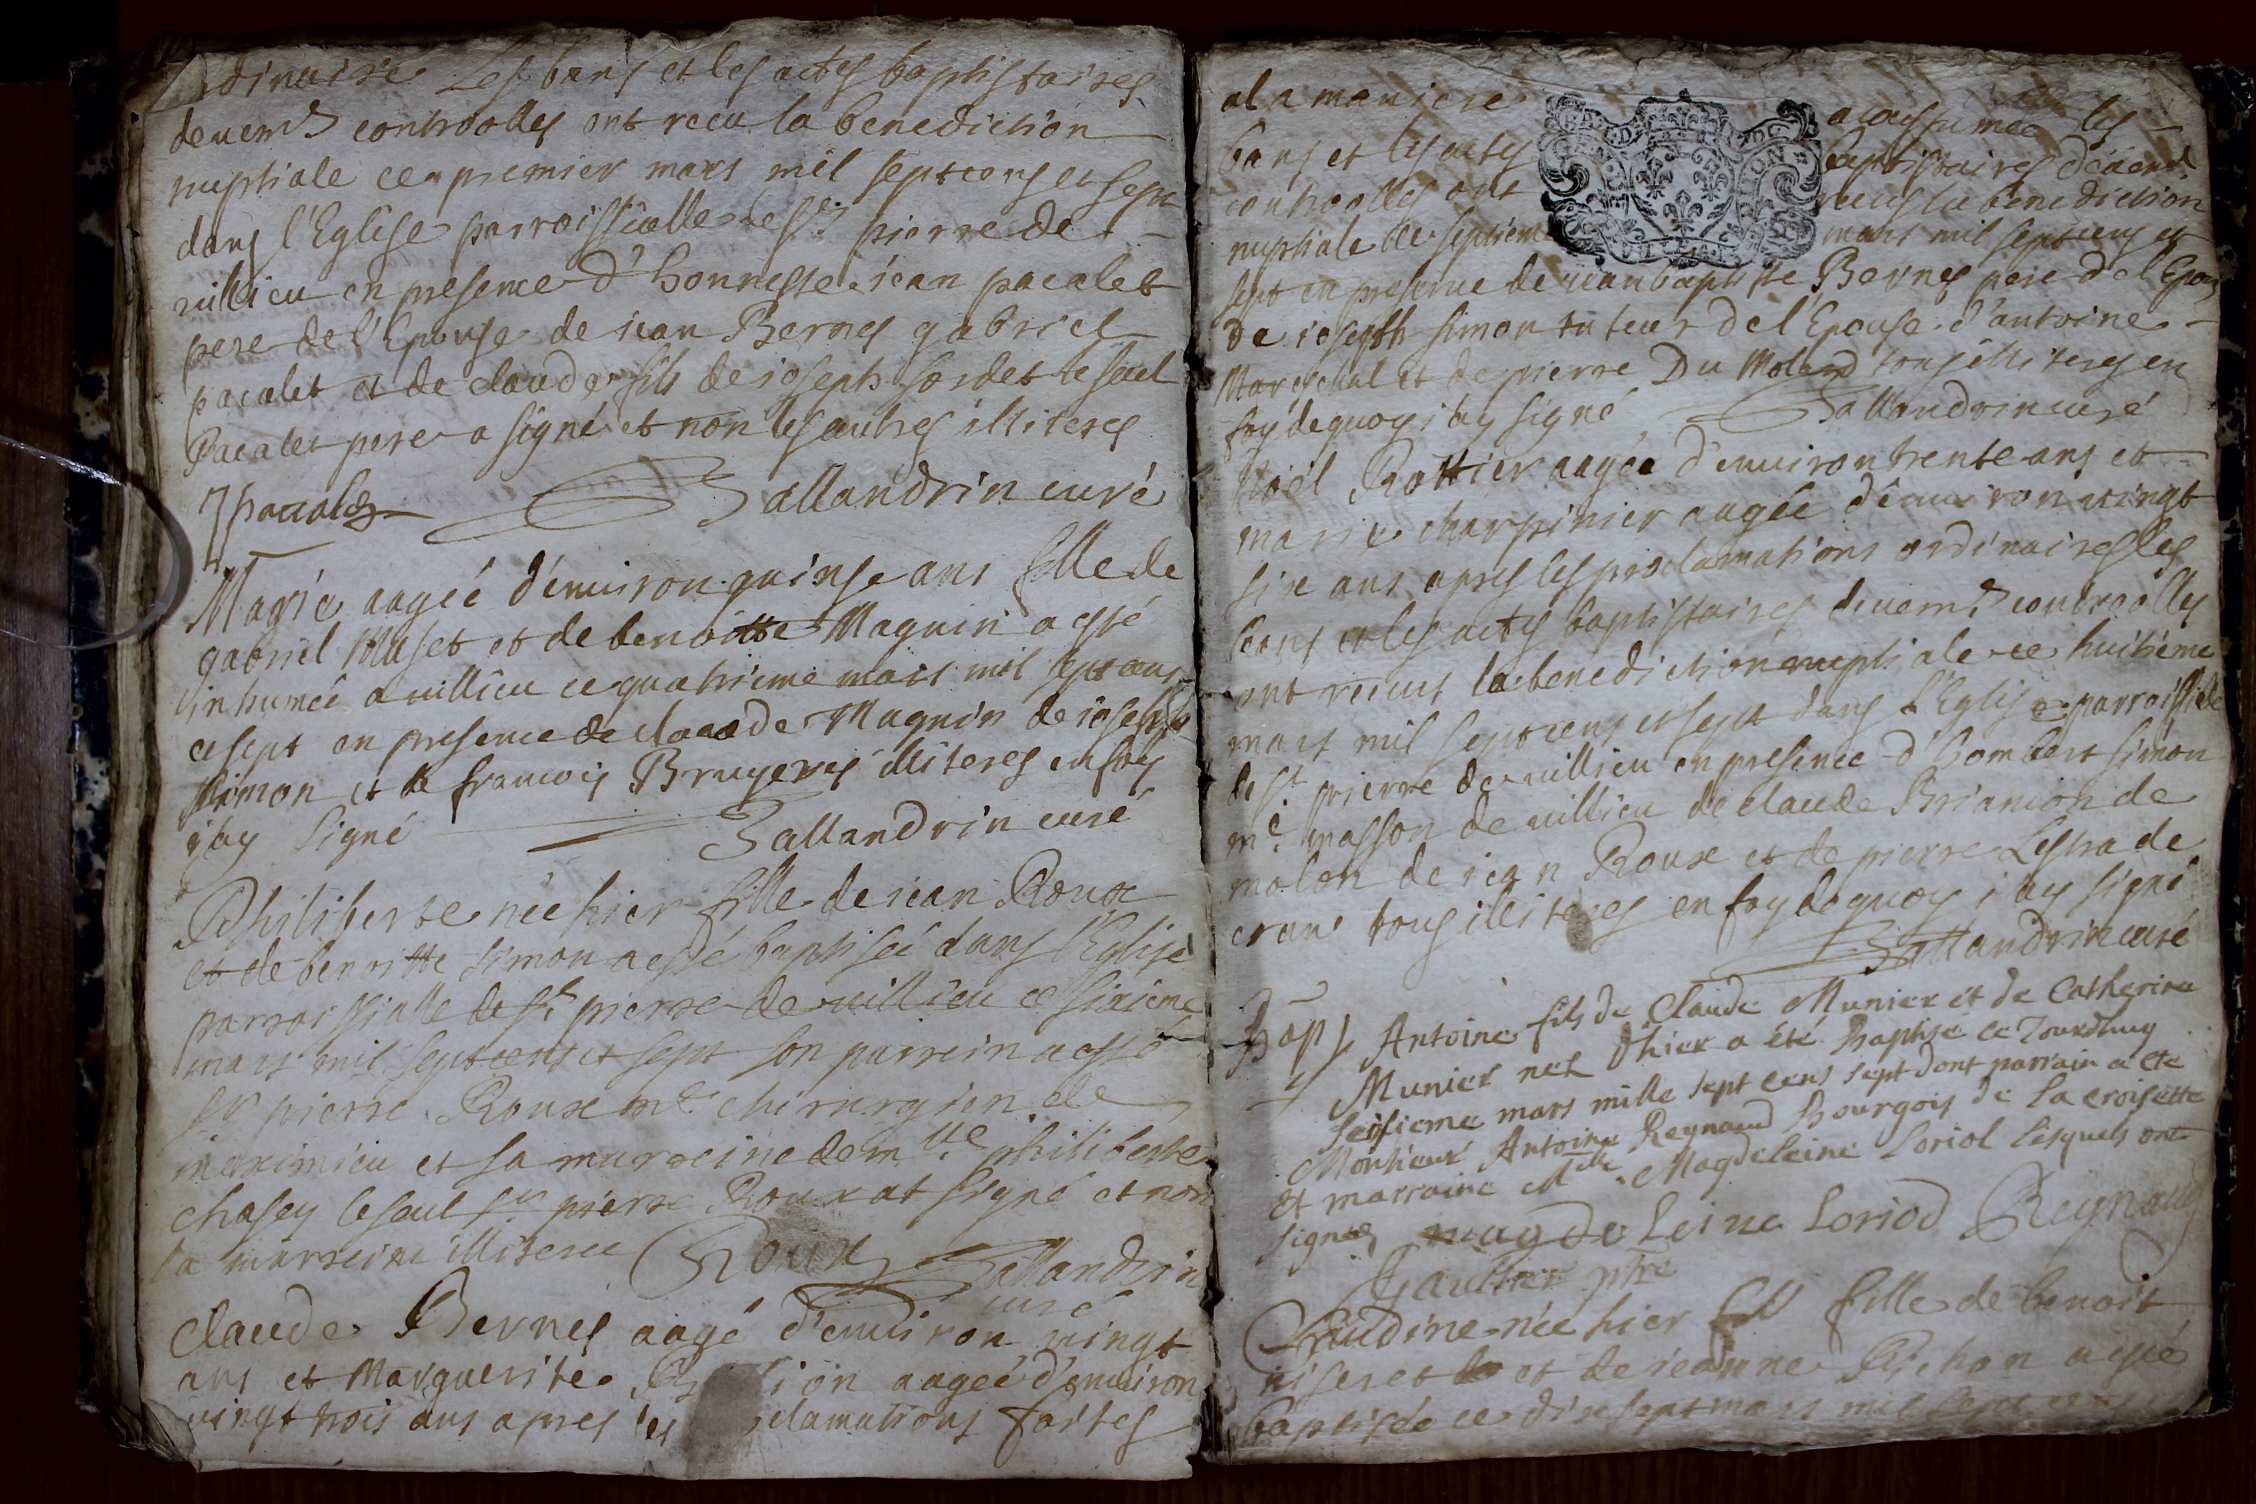 dinaire Les bans et les actes baptistaires
deuem.t controolles ont recu la benediction
nuptiale ce premier mars mil sept cens et sept
dans l'Eglise parroissialle de s.t pierre de
villieu en presence d'honneste jean pacalet
pere de l'Epouse de jean Bernes gabriel
pacalet et de claude fils de joseph sordet le seul
Pacalet pere a signé et non les autres illiteres
J pacalet Ballandrin curé
Marie aagée d'enuiron quinse ans fille de
gabriel Muset et de benoitte Magnin a esté
inhumée a villieu ce quatrieme mars mil sept cens
et sept en presence de claude Magnin de joseph
simon et de francois Bruyeres illiteres en foy
j'ay signé Ballandrin curé
Philiberte née hier fille de jean Roux
et de benoitte simon a esté baptisée dans l'Eglise
parroissialle de s.t pierre de villieu ce sixieme
mars mil sept cens et sept son parrein a esté
s.r pierre Roux m.e chirurgien de
meximieu et sa marreine dem.lle philiberte
chasey le seul s.r pierre Roux at signé et non
la marreine illiteree Roux Ballandrin
curé
claude Bernes aagé d'enuiron vingt
ans et Marguerite aagée d'enuiron
vingt trois ans apres les clamations faites
a la maniere acoustumée les
bans et les actes baptistaires deuem.t
controolles ont receus la benediction
nuptiale ce septieme mars mil sept cens et
sept en presence de jean baptiste Bernes pere de l'Epoux
de joseph simon tuteur de l'Epouse d'antoine
Mareschal et de pierre Du Molard tous illiteres en
foy de quoy j'ay signé Ballandrin curé
Noël Rottier aagée d'enuiron trente ans et
marie charpinier aagée d'enuiron vingt
six ans apres les proclamations ordinaires les
bans et les actes baptistaires deuem.t controolles
ont receus la benediction nuptiale ce huitieme
mars mil sept cens et sept dans l'Eglise parroissialle
de s.t pierre de villieu en presence d'hombert simon
m.e masson de villieu de claude Briancon de
molon de jean Roux et de pierre Lestra de
cran tous illiteres en foy de quoy j'ay signé
Ballandrin curé
Bap. Antoine fils de Claude Munier et de Catherine
Munier net d'hier a été Baptisé ce Jourdhuy
seisieme mars mille sept cens sept dont parrain a ete
Monsieur Antoine Reynaud Bourgois de La croisette
et marraine M.elle Magdeleine Loriol Lesquels ont
signez magdeleine Loriod Reynaud
Gaultier ptre
Claudine née hier fille de benoit
niseret et de jeanne Pichon a esté
baptisée ce dix sept mars mil sept cens